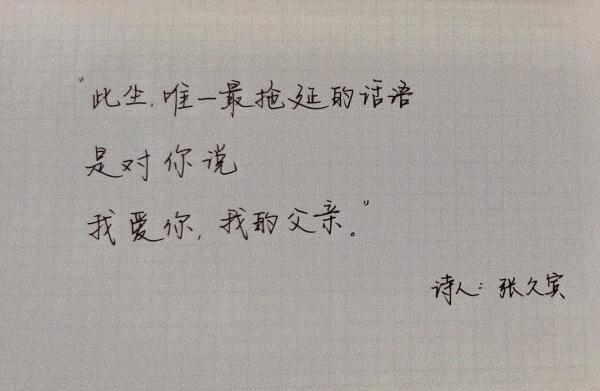 “此生,唯一最拖延的话语
是对你说
我爱你,我的父亲。”
诗人:张久宾